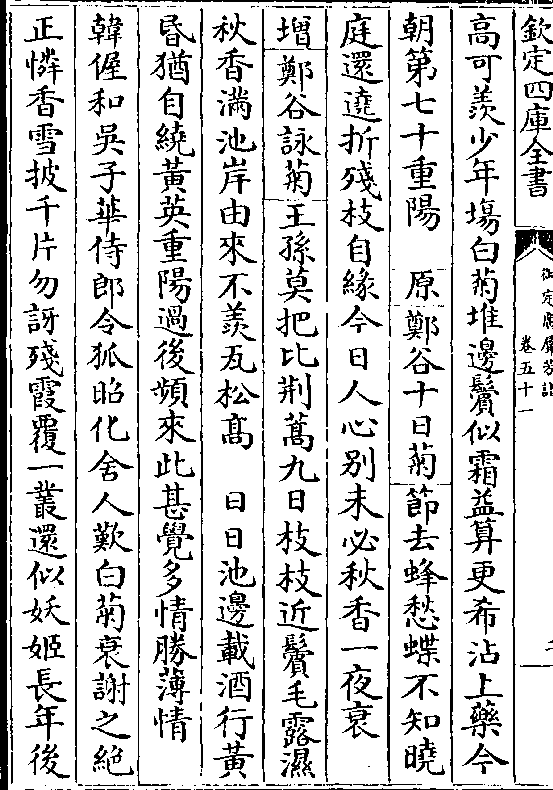 欽定四庫全書
御定廣羣芳譜
卷五十一
高可羨少年塲白菊堆邊鬢似霜益算更希沾上藥今
朝第七十重陽　原鄭谷十日菊節去蜂愁蝶不知曉
庭還遶折殘枝自緣今日人心别未必秋香一夜衰
增鄭谷詠菊王孫莫把比荆蒿九日枝枝近鬢毛露濕
秋香滿池岸由來不羨瓦松髙　日日池邊載酒行黃
昏猶自繞黃英重陽過後頻來此甚覺多情勝薄情
韓偓和吳子華侍郎令狐昭化舍人歎白菊衰謝之絶
正憐香雪披千片勿訝殘霞覆一叢還似妖姬長年後